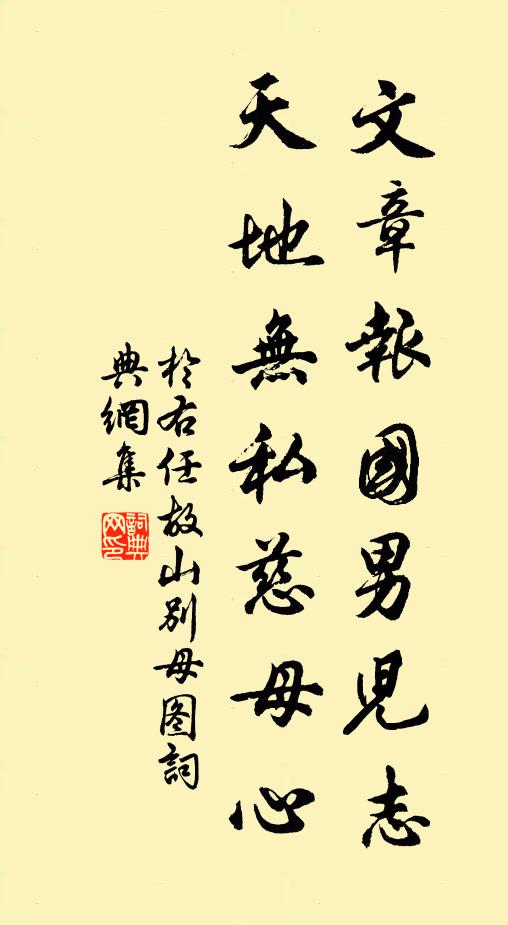 文章報國男兒志
天地無私慈母心
於右任故山别母图詞
典網集
詞典
网印